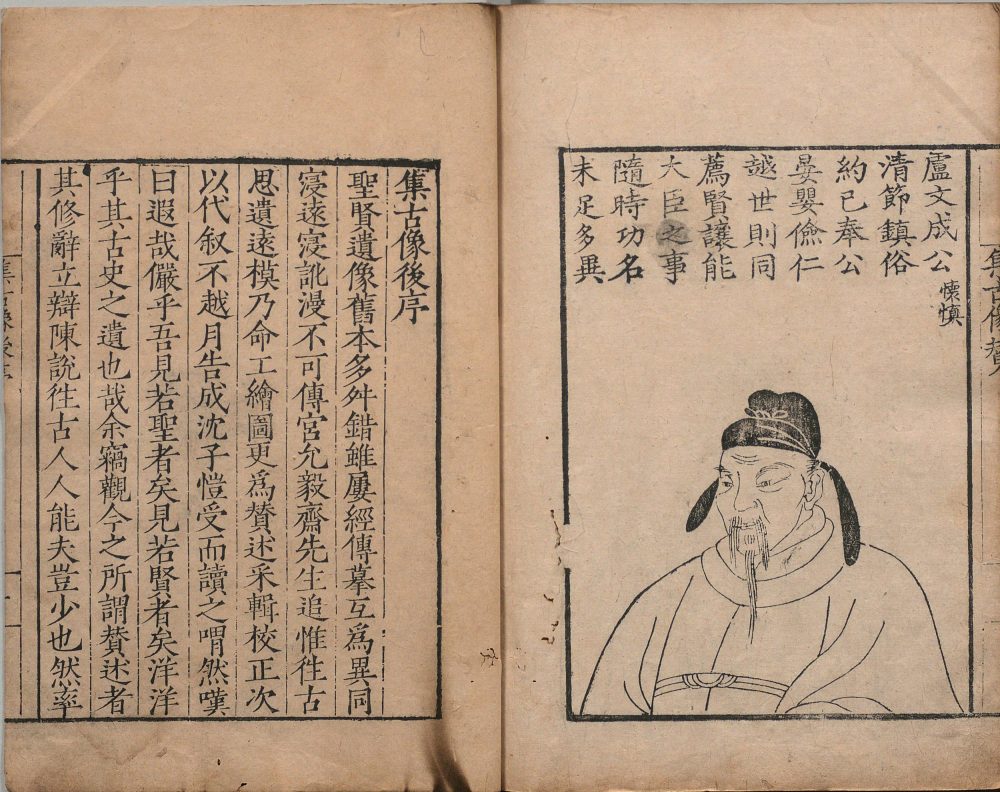 集古像贊
盧文成公 懷慎
清節鎮俗
約已奉公
晏嬰儉仁
越世則同
薦賢讓能
大臣之事
隨時功名
未足多異
集古像後序
聖賢遺像舊本多舛錯雖屢經傳摹互爲異同
寖遠寖訛漫不可傳宮允毅齋先生追惟徃古
思遺遠模乃命工繪圖更爲贊述采輯校正次
以代叙不越月告成沈子愷受而讀之喟然嘆
曰遐哉儼乎吾見若聖者矣見若賢者矣洋洋
乎其古史之遺也哉余竊觀今之所謂贊述者
其修辭立辯陳說徃古人人能夫豈少也然率
集古像後序